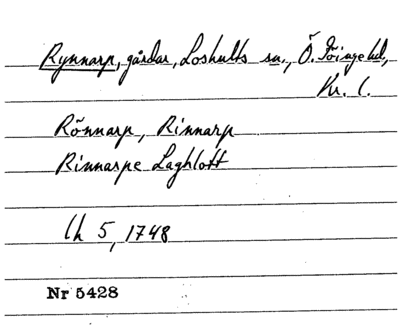 Rynnarp, gårdar, Loshults sn., Ö. Göinge hd,
Kr. l.
Rönnarp, Rinnarp
Rinnarpe Laghlott
lh 5, 1748
Nr 5428